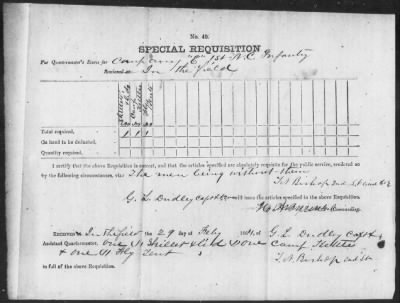 No. 40.
SPECIAL REQUISITION
For Quartermaster's Stores for Company "C" 1st N.C. Infantry
Received at In the field
Skillets & lids
Camp Kettles
Fly Tents
Total required, 1 1 1
On hand to be deducted,
Quantity required.
I certify that the above Requisition is correct, and that the articles specified are absolutely requisite for the public service, rendered so
by the following circumstances, viz: The men being without them
T. N. Bishop 2nd Lt
G. L. Dudley Capt & will issue the articles specified in the above requisition.
Commanding
Received at In the field the 29 of Feby 1864, of G. L. Dudley Capt &
Assistant Quartermaster, one Skillet & lid one Camp Kettle
& one Fly Tent
in full of the above Requisition. T. N. Bishop 2nd Lt